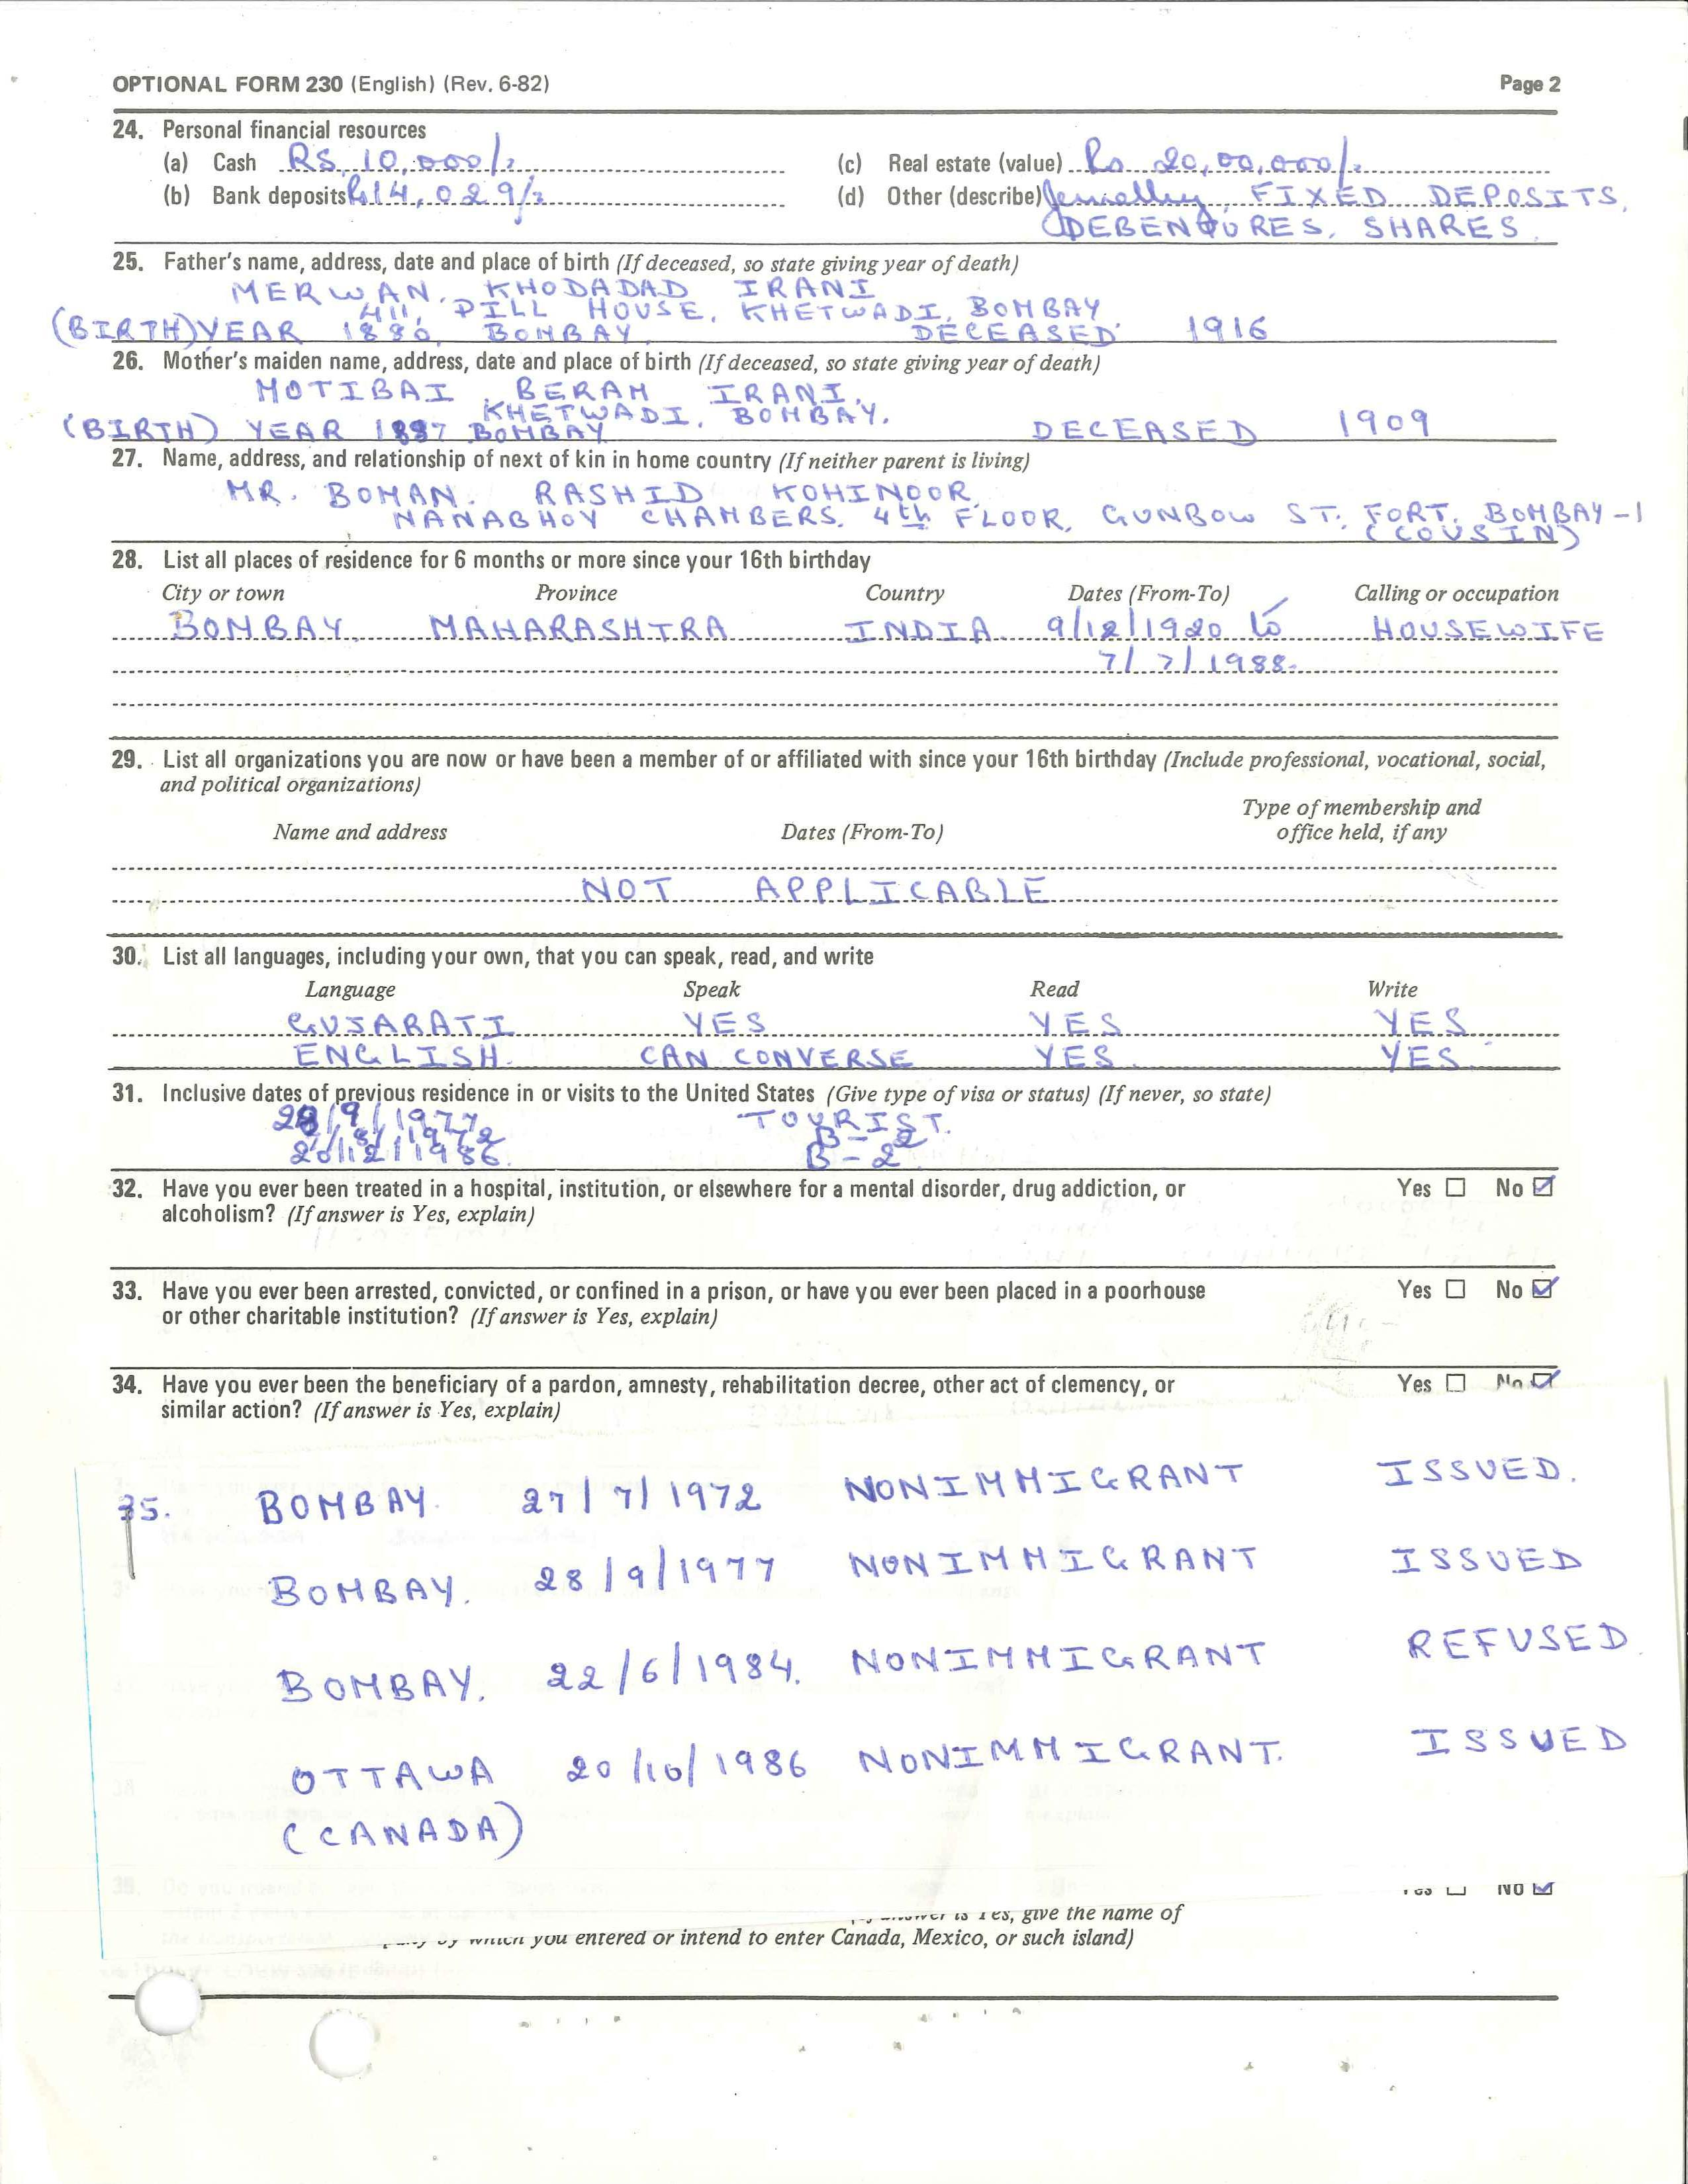 OPTIONAL FORM 230 (English) (Rev. 6-82) Page 2
24. Personal financial resources
(a) Cash RS. 10,000/= (c) Real estate (value) Rs 20,00,000/=
(b) Bank deposits Rs14,029/= (d) Other (describe) Jewellery, FIXED DEPOSITS,
DEBENTURES, SHARES.
25. Father's name, address, date and place of birth (If deceased, so state giving year of death)
MERWAN. KHODADAD IRANI
411, DILL HOUSE, KHETWADI, BOMBAY
(BIRTH) YEAR 1880, BOMBAY. DECEASED 1916
26. Mother's maiden name, address, date and place of birth (If deceased, so state giving year of death)
MOTIBAI BERAM IRANI.
KHETWADI, BOMBAY.
(BIRTH) YEAR 1887 BOMBAY DECEASED 1909
27. Name, address, and relationship of next of kin in home country (If neither parent is living)
MR. BOMAN. RASHID KOHINOOR
NANABHOY CHAMBERS, 4th FLOOR, GUNBOW ST. FORT, BOMBAY-1
(COUSIN)
28. List all places of residence for 6 months or more since your 16th birthday
City or town Province Country Dates (From-To) Calling or occupation
BOMBAY. MAHARASHTRA INDIA 9/12/1920 to HOUSEWIFE
7/7/1988.
29. List all organizations you are now or have been a member of or affiliated with since your 16th birthday (Include professional, vocational, social,
and political organizations)
Type of membership and
Name and address Dates (From-To) office held, if any
NOT APPLICABLE
30. List all languages, including your own, that you can speak, read, and write
Language Speak Read Write
GUJARATI YES YES YES
ENGLISH. CAN CONVERSE YES YES
31. Inclusive dates of previous residence in or visits to the United States (Give type of visa or status) (If never, so state)
28/9/1977 TOURIST.
/8/1972 B-2
20/12/1986. B-2
32. Have you ever been treated in a hospital, institution, or elsewhere for a mental disorder, drug addiction, or Yes No
alcoholism? (If answer is Yes, explain)
33. Have you ever been arrested, convicted, or confined in a prison, or have you ever been placed in a poorhouse Yes No
or other charitable institution? (If answer is Yes, explain)
34. Have you ever been the beneficiary of a pardon, amnesty, rehabilitation decree, other act of clemency, or Yes No
similar action? (If answer is Yes, explain)
35. BOMBAY. 27/7/1972 NONIMMIGRANT ISSUED.
BOMBAY. 28/9/1977 NONIMMIGRANT ISSUED
BOMBAY. 22/6/1984. NONIMMIGRANT REFUSED
OTTAWA 20/10/1986 NONIMMIGRANT. ISSUED
(CANADA)
Yes No
answer is Yes, give the name of
by which you entered or intend to enter Canada, Mexico, or such island)